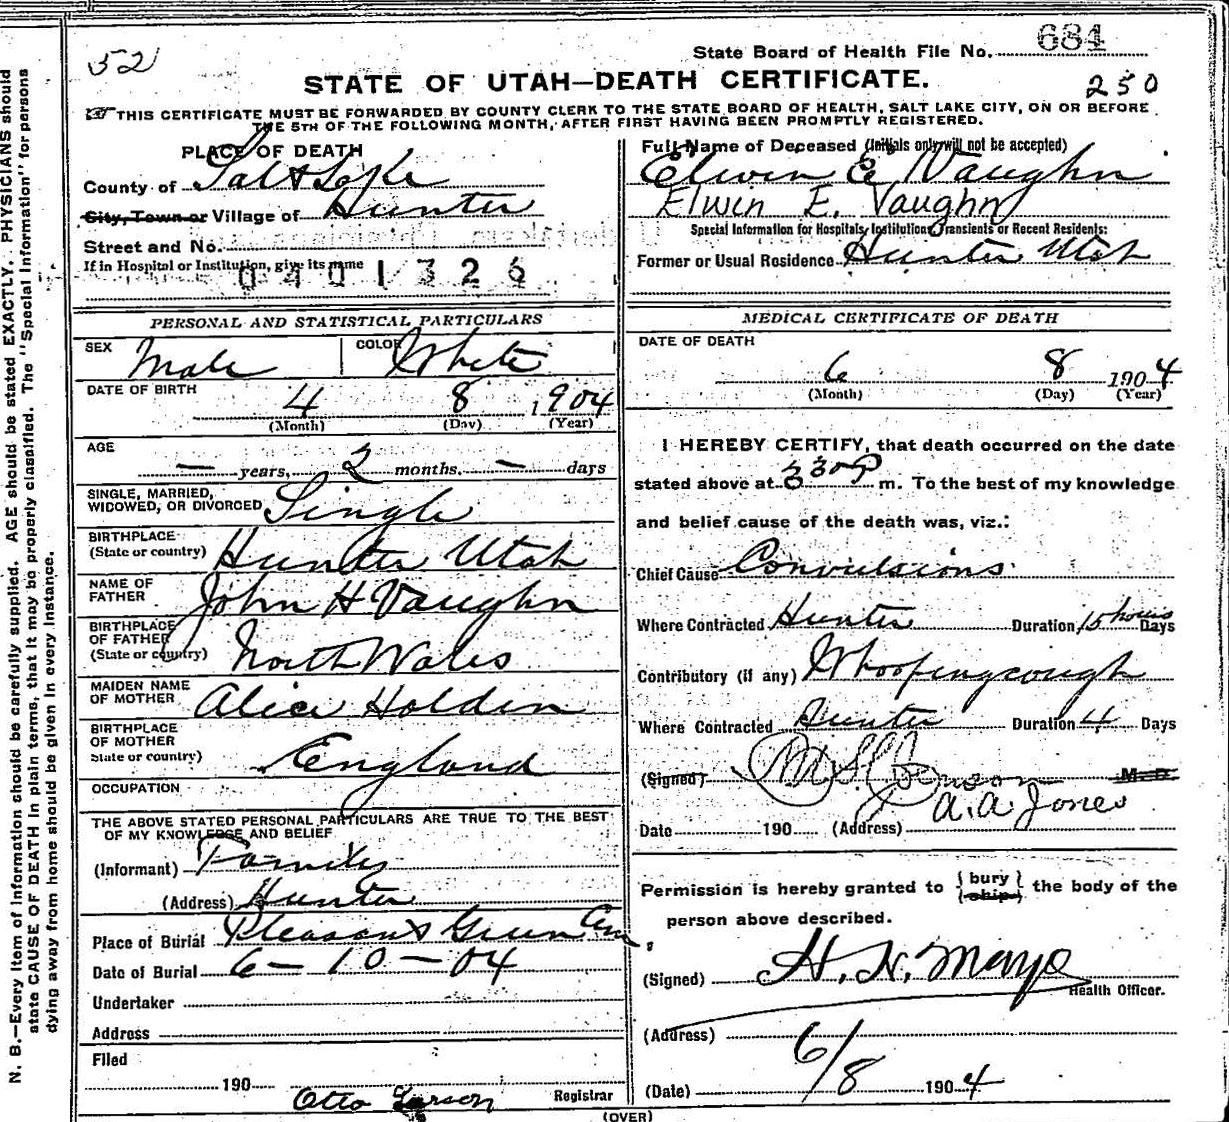 52
State Board of Health File No. 684
STATE OF UTAH—DEATH CERTIFICATE.
250
THIS CERTIFICATE MUST BE FORWARDED BY COUNTY CLERK TO THE STATE BOARD OF HEALTH, SALT LAKE CITY, ON OR BEFORE
THE 5TH OF THE FOLLOWING MONTH, AFTER FIRST HAVING BEEN PROMPTLY REGISTERED.
PLACE OF DEATH
County of Salt Lake
City, Town or Village of Hunter
Street and No.
If in Hospital or Institution, give its name
0401326
Full Name of Deceased (Initials only will not be accepted)
Elwin E Vaughn
Elwin E. Vaughn
Special Information for Hospitals, Institutions, Transients or Recent Residents:
Former or Usual Residence Hunter Utah
PERSONAL AND STATISTICAL PARTICULARS
SEX Male COLOR White
DATE OF BIRTH
4 8 1904
(Month) (Day) (Year)
AGE
— years, 2 months. — days
SINGLE, MARRIED,
WIDOWED, OR DIVORCED Single
BIRTHPLACE
(State or country) Hunter Utah
NAME OF
FATHER John H Vaughn
BIRTHPLACE
OF FATHER
(State or country) North Wales
MAIDEN NAME
OF MOTHER Alice Holden
BIRTHPLACE
OF MOTHER
State or country) England
OCCUPATION
THE ABOVE STATED PERSONAL PARTICULARS ARE TRUE TO THE BEST
OF MY KNOWLEDGE AND BELIEF
(Informant) Family
(Address) Hunter
Place of Burial Pleasant Green Cem.
Date of Burial 6—10—04
Undertaker
Address
Filed
190
Otto Larson Registrar
MEDICAL CERTIFICATE OF DEATH
DATE OF DEATH
6 8 1904
(Month) (Day) (Year)
I HEREBY CERTIFY, that death occurred on the date
stated above at 330 P m. To the best of my knowledge
and belief cause of the death was, viz.:
Chief Cause Convulsions
Where Contracted Hunter Duration 15 hours Days
Contributory (if any) Whoopingcough
Where Contracted Hunter Duration 4 Days
(Signed) M. D.
A. A Jones
Date 190 (Address)
Permission is hereby granted to { bury } the body of the
{ ship }
person above described.
(Signed) H. N. Mayo
Health Officer.
(Address)
(Date) 6/8 1904
(OVER)
N. B.—Every item of information should be carefully supplied. AGE should be stated EXACTLY. PHYSICIANS should
state CAUSE OF DEATH in plain terms, that it may be properly classified. The "Special Information" for persons
dying away from home should be given in every instance.